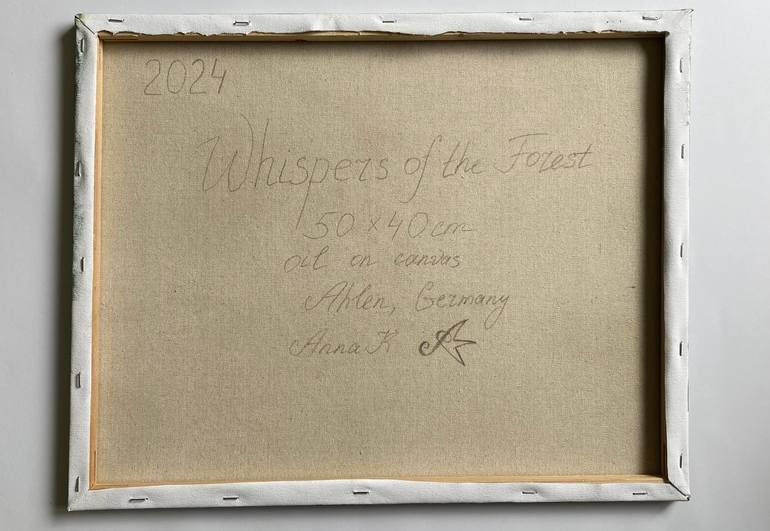 2024
Whispers of the Forest
50 x 40 cm
oil on canvas
Ahlen, Germany
Anna K